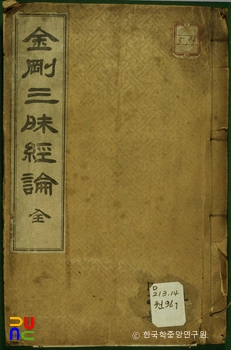 金剛三昧經論 全
D
213.14
ⓒ 한국학중앙연구원